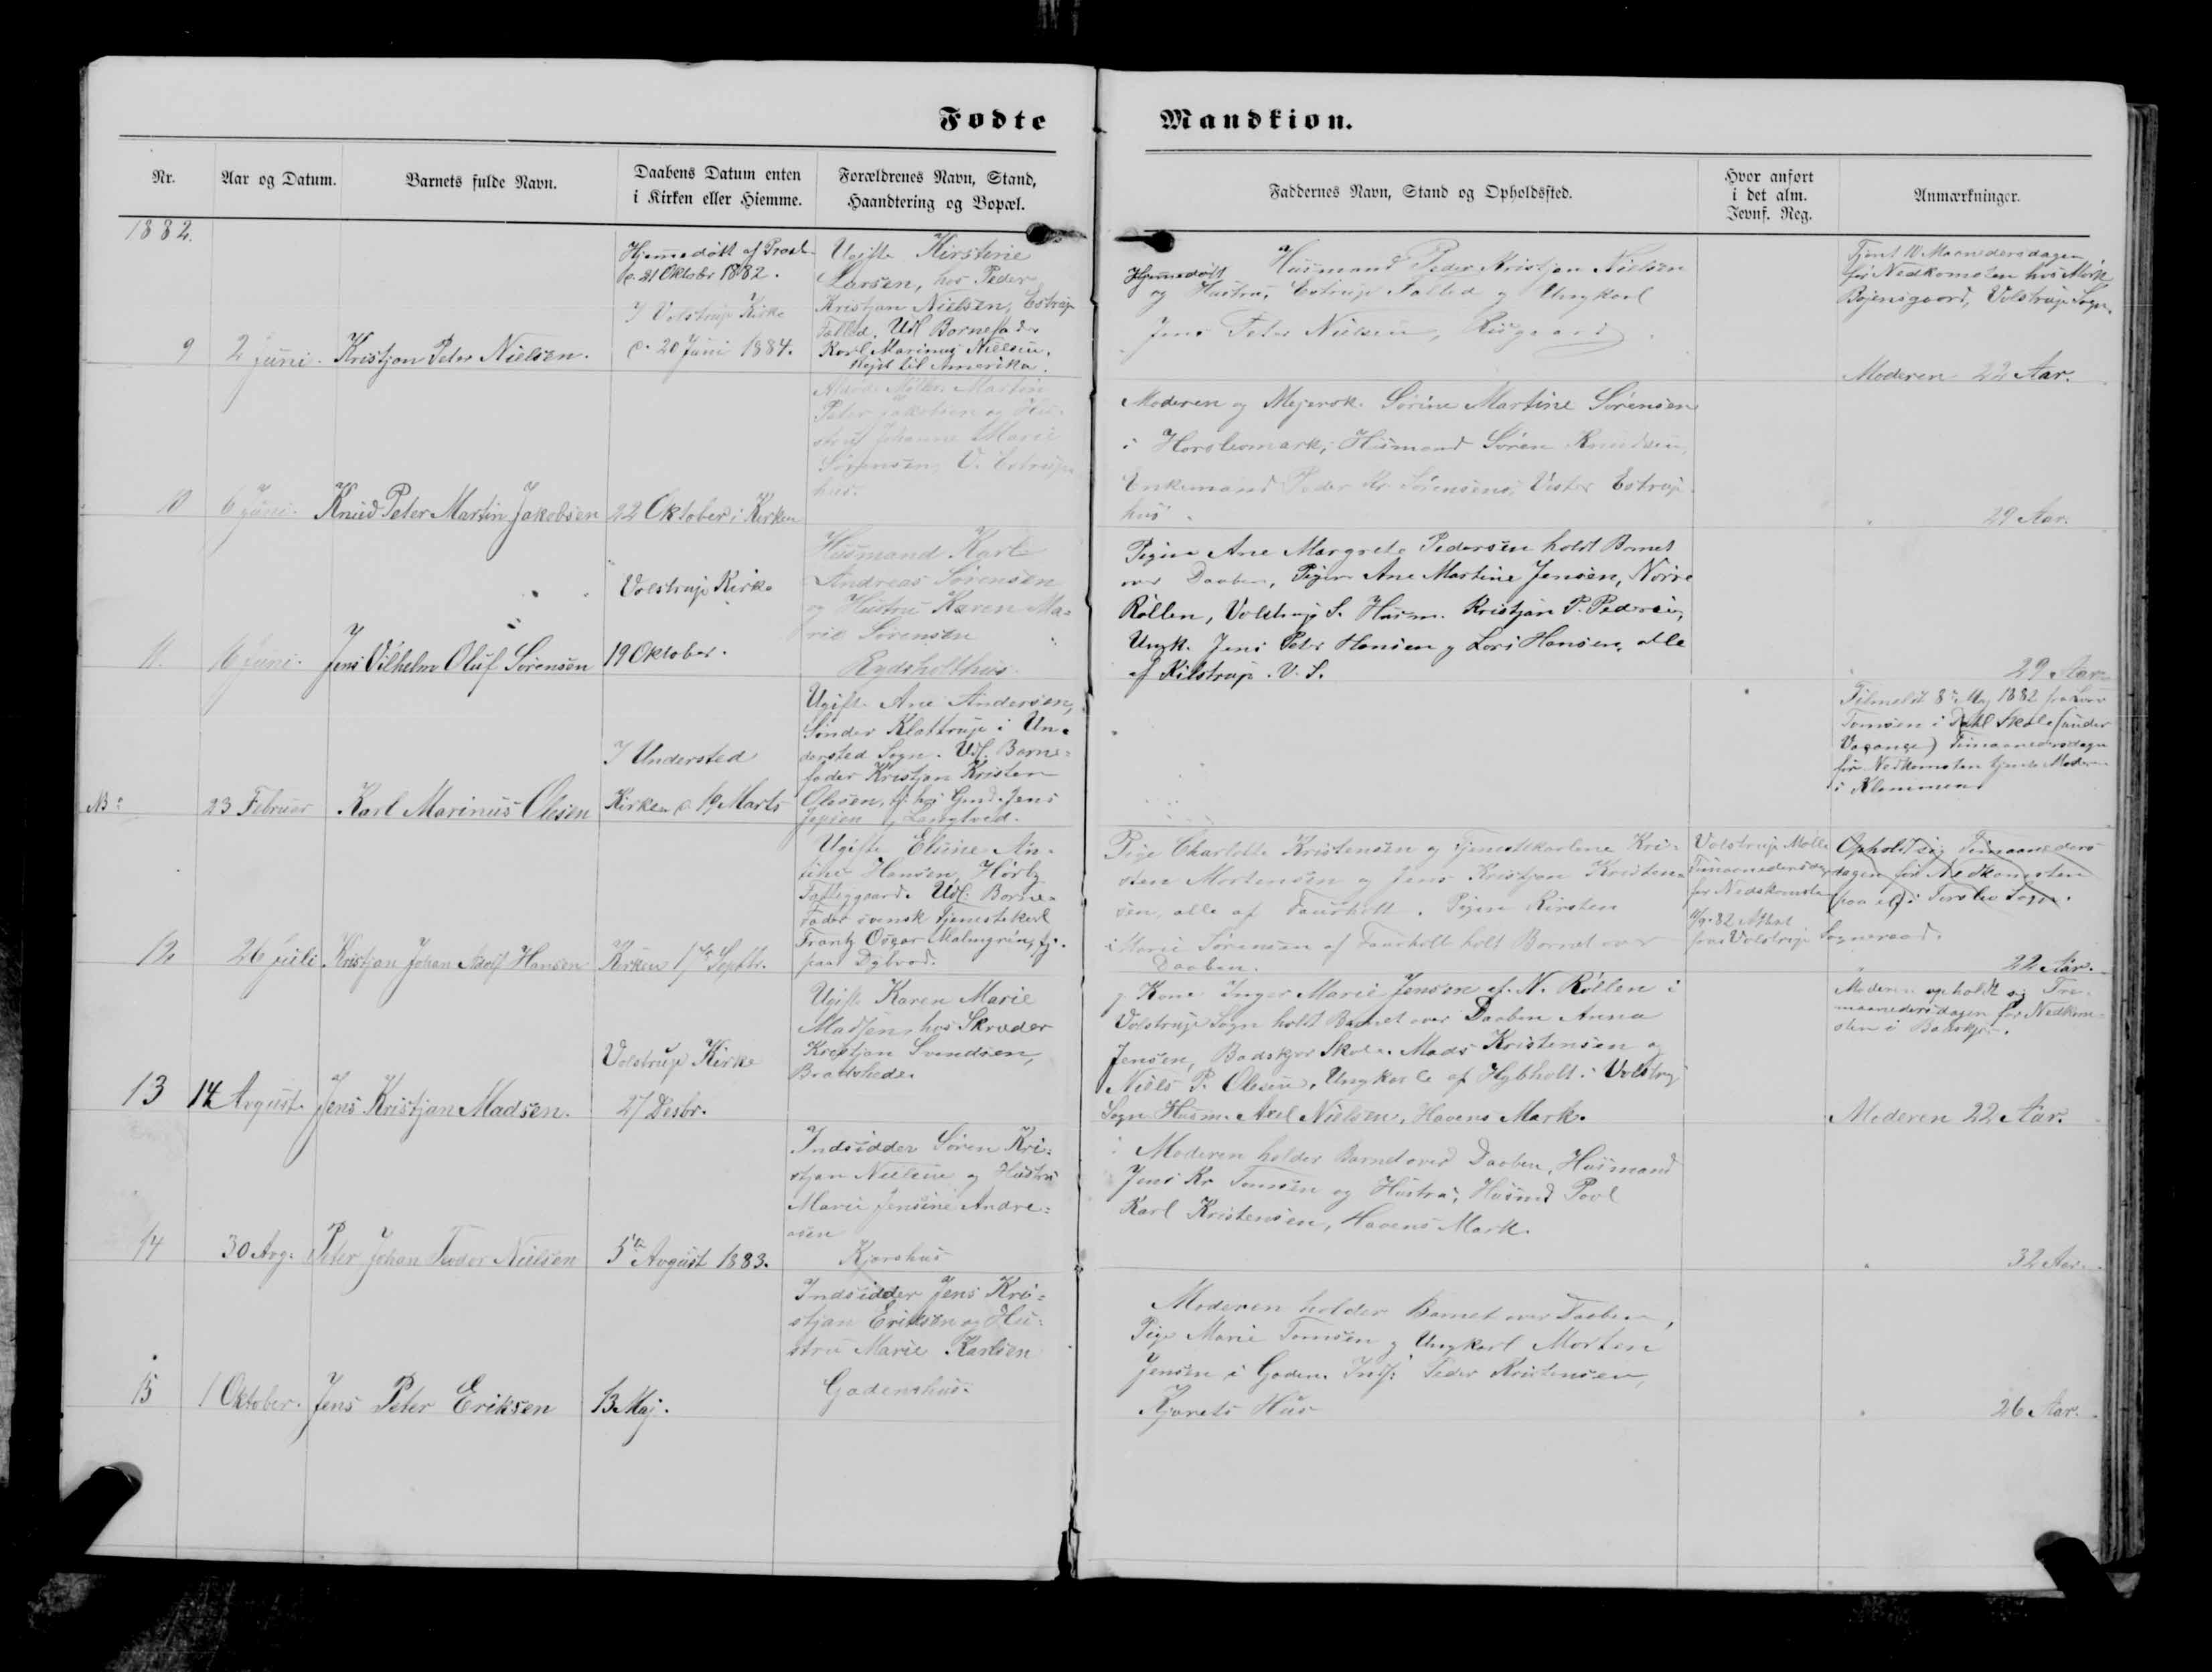 Fødte Mandkiøn.
Nr.
Aar og Datum.
Barnets fulde Navn.
Daabens Datum enten
i Kirken eller Hiemme.
Forældrenes Navn, Stand,
Haandtering og Bopæl.
Faddernes Navn, Stand og Opholdssted.
Hvor anført
i det alm.
Jevnf. Reg.
Anmærkninger.
1882.
9
2 Juni.
Kristjan Peter Nielsen.
Hjemmedøbt af Præst.
d. 21 Oktobr 1882.
I Volstrup Kirke
d. 20 Juni 1884.
Ugifte Kirstine
Larsen, hos Peder
Kristjan Nielsen, Estrup
Falled. Udl. Barnefader
Karl Marinus Nielsen.
Rejst til Amerika.
Hjemmedøbt Husmand Peder Kristjan Nielsen
og Hustru, Estrup Falled og Ungkarl
Jens Peter Nielsen,
Tjent 10 Maanedersdagen
før Nedkomsten hos
Bøjensgaard, Volstrup Sogn.
Moderen 22 Aar.
10
6 Juni.
Knud Peter Martin Jakobsen
22 Oktober i Kirken
Martin
Peter Jakobsen og Hu-
stru Johanne Marie
Sørensen, V. Estrup-
hus.
Moderen og Mejersk. Sørine Martine Sørensen
i Horslevmark, Husmand Søren Knudsen,
Enkemand Peder Kr. Sørensens, Vester Estrup-
hus.
" 29 Aar.
11.
16 Juni.
Jens Vilhelm Oluf Sørensen
Volstrup Kirke
19 Oktober.
Husmand Karl
Andreas Sørensen
og Hustru Karen Ma-
rie Sørensen
Rydsholthus.
Pigen Ane Margrete Pedersen holdt Barnet
over Daaben, Pigen Ane Martine Jensen, Nørre
Røllen, Volstrup S. Husm. Kristjan P. Pedersen,
Ungk. Jens Peter Hansen og Lars Hansen, alle
af Kilstrup. V. S.
" 29 Aar.
NB:
23 Februar
Karl Marinus Olesen
I Understed
Kirke d. 19 Marts
Ugift Ane Andersen,
Sønder Klattrup i Un-
dersted Sogn. Udl. Barne-
fader Kristjan Kristen
Olesen, tj. hos Gmd. Jens
Jepsen, Langtved.
Tilmeldt 8de Maj 1882 fra
Tomsen i Dahl Skole (under
Vacance) Timaanedersdagen
før Nedkomsten tjente Moderen
i Klemmen
12
26 Juli
Kristjan Johan Adolf Hansen
Kirken 17de Septbr.
Ugifte Elsine An-
tine Hansen, Hørby
Udl. Barne-
fader svensk Tjenestekarl
Frantz Oscar Malmgrén, tj.
paa Dybvad.
Pige Charlotte Kristensen og Tjenestekarlene Kri-
sten Mortensen og Jens Kristjan Kristen-
sen, alle af Faurholt. Pigen Kirsten
Marie Sørensen af Faurholt holt Barnet over
Daaben.
Volstrup Mølle
Timaanedersdag
før Nedkomsten
for Volstrup Sogneraad.
Opholdt sig Timaaneders
dagen før Nedkomsten
i Torslev Sogn.
" 22 Aar.
13
14 Avgust.
Jens Kristjan Madsen.
Volstrup Kirke
27 Desbr.
Ugift Karen Marie
Madsen, hos Skræder
Kristjan Svendsen,
Brattshede.
Kone Inger Marie Jensen af N. Røllen i
Volstrup Sogn holdt Barnet over Daaben Anna
Jensen, Badskjær Skole. Mads Kristensen og
Niels P. Olesen, Ungkarle af Hybholt i Volstrup
Sogn Husm. Axel Nielsen, Havens Mark.
Moderen opholdt sig Ti-
maanedersdagen før Nedkom-
sten i Badskjær.
Moderen 22 Aar.
14
30 Avg.
Peter Johan Teodor Nielsen
5te Avgust 1883.
Indsidder Søren Kri-
stjan Nielsen og Hustru
Marie Jensine Andre-
asen
Kjærshus
Moderen holder Barnet over Daaben, Husmand
Jens Kr Tomsen og Hustru, Husmd Povl
Karl Kristensen, Havens Mark.
" 32 Aar.
15
1 Oktober.
Jens Peter Eriksen
13 Maj.
Indsidder Jens Kri-
stjan Eriksen og Hu-
stru Marie Karlsen
Gadenshus.
Moderen holder Barnet over Daaben,
Pige Marie Tomsen og Ungkarl Morten
Jensen i Gaden. Inds: Peder Kristensen,
Kjærets Hus
" 26 Aar.